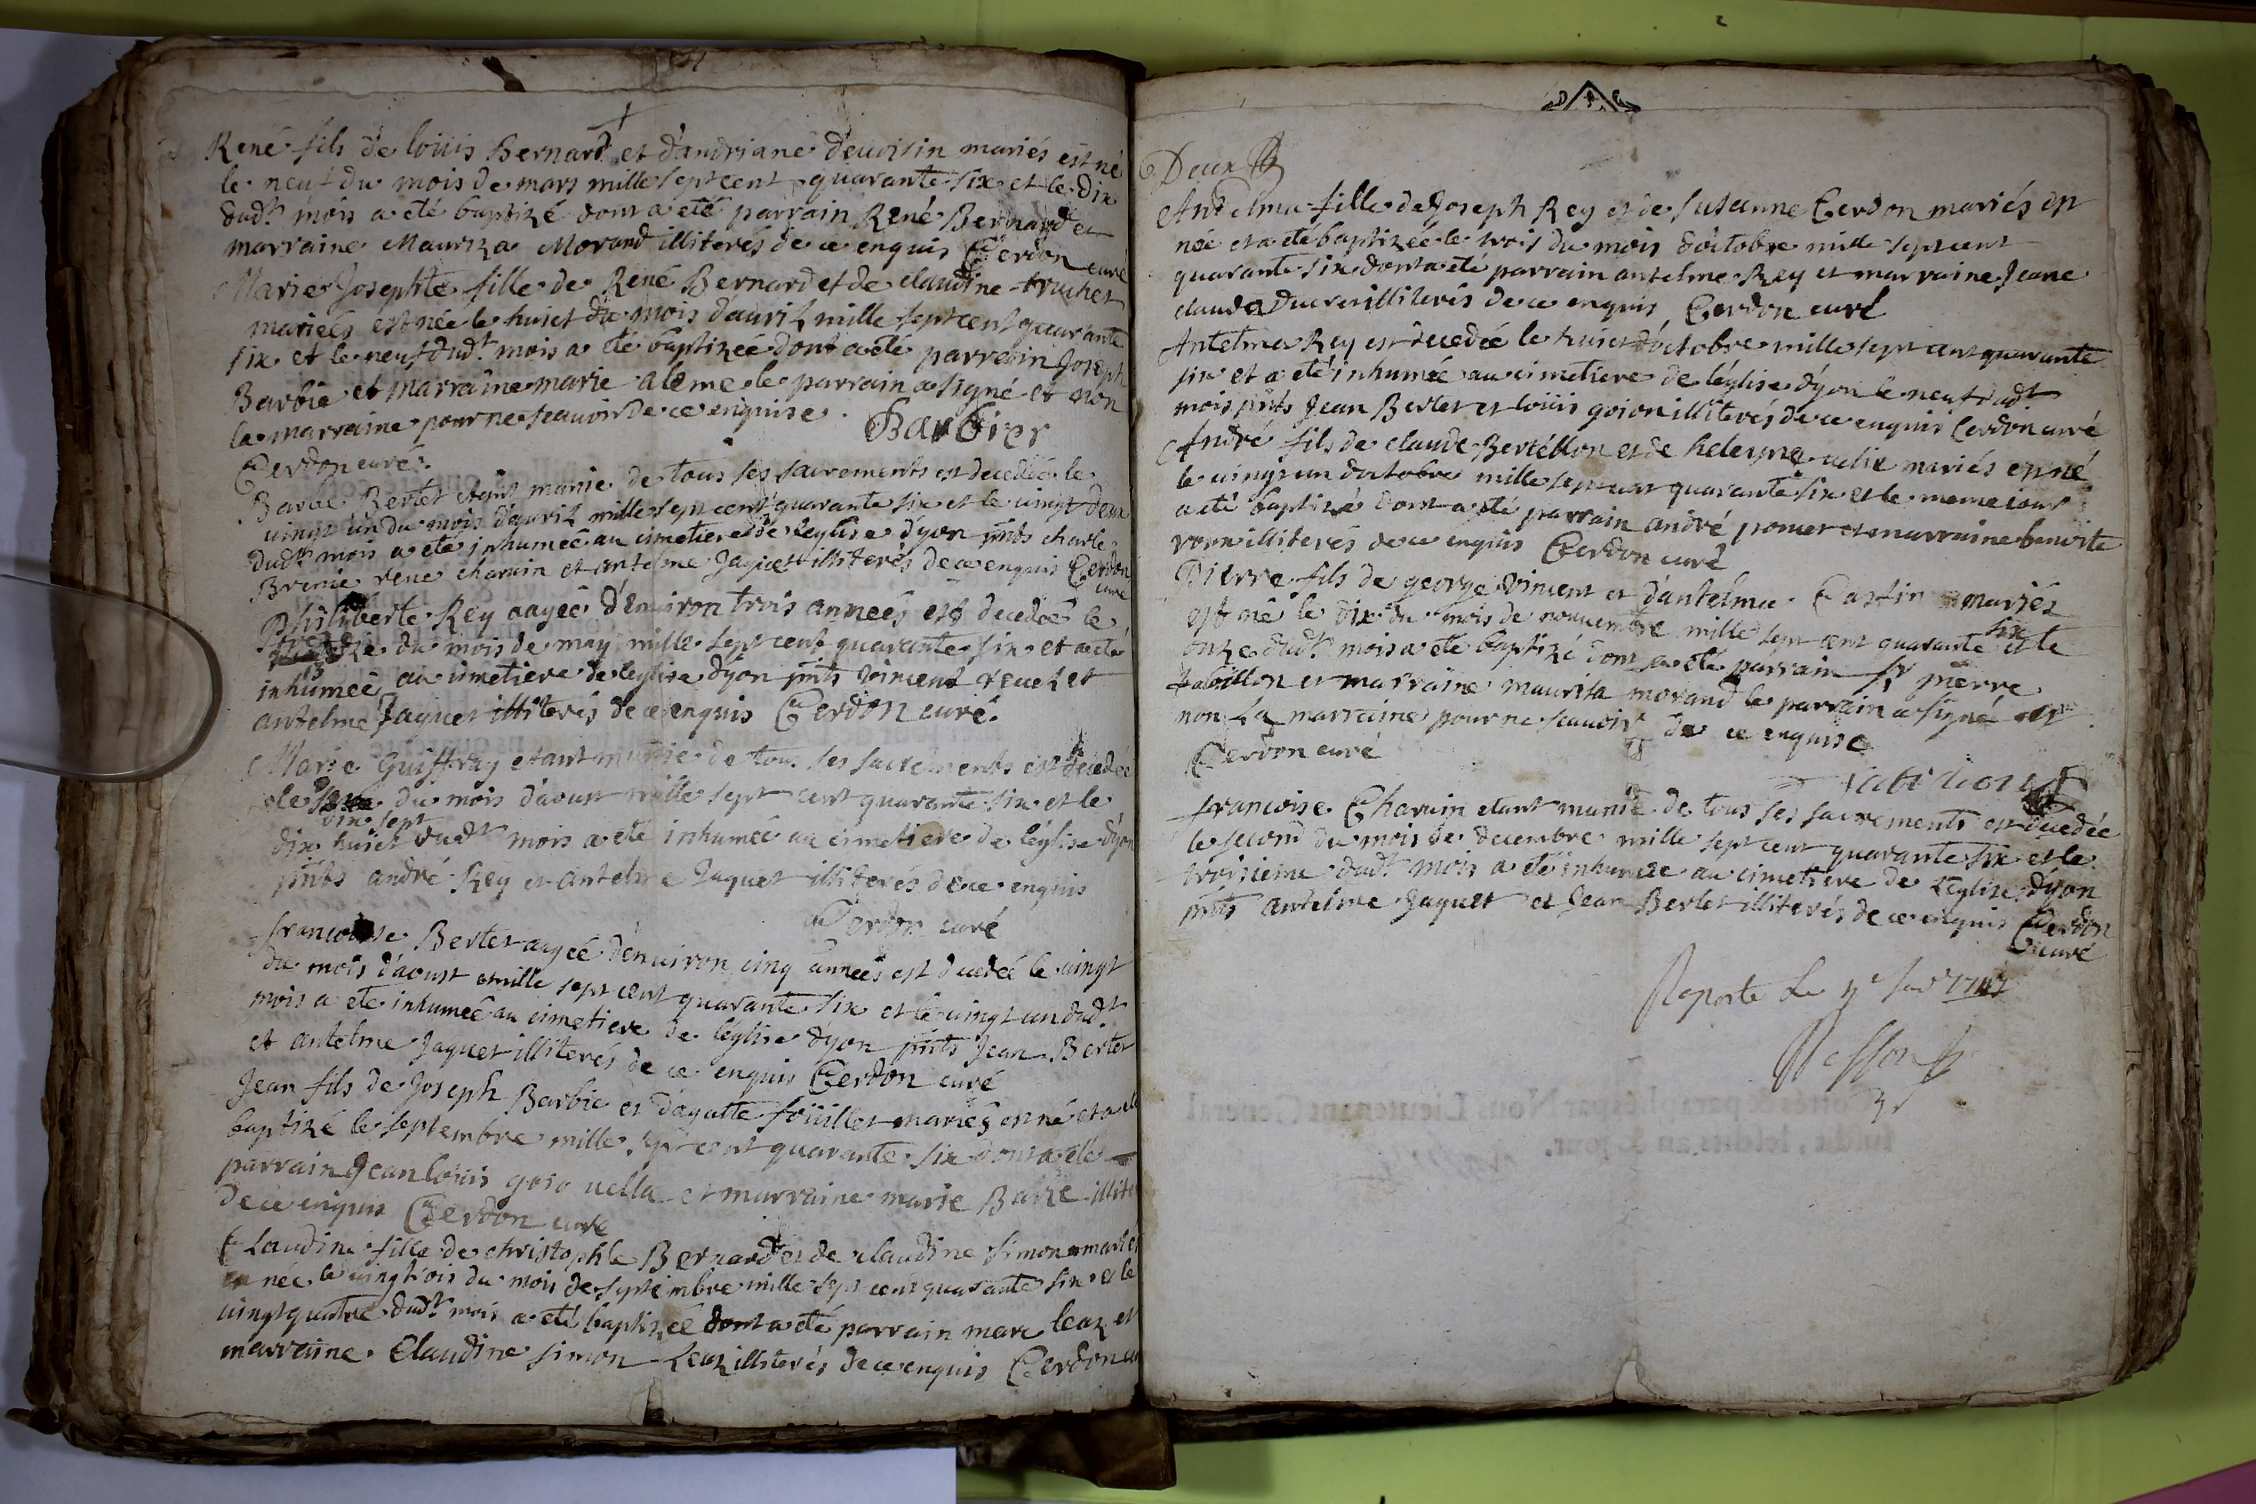 René fils de loüis Bernard et d'andriane deuoisin mariés est né
le neuf du mois de mars mille sept cent quarante six et le dix
dudt mois a eté baptizé dont a eté parrain René Bernard et
marraine Mauriza Morand illiterés de ce enquis Cerdon curé
Marie Josephte fille de René Bernard et de claudine truchet
mariées est née le huict du mois d'auril mille sept cent quarante
six et le neuf dudt mois a eté baptizée dont a eté parrain Joseph
Barbié et marraine marie aleme le parrain a signé et non
la marraine pour ne scauoir de ce enquise. Barbier
Cerdon curé.
Barbe Berlet etant munie de tous ses sacrements est decedée le
uingt un du mois d'auril mille sept cent quarante six et le uingt deux
dudt mois a eté inhumée au cimetiere de l'eglise dyon pnts charle
rene charuin et antelme Jaquet illiterés de ce enquis Cerdon
curé
Philiberte Rey aagée d'enuiron trois années est decedée le
treze du mois de may mille sept cent quarante six et a eté
inhumée au cimetiere de l'eglise dyon pnts vincent reuel et
antelme Jaquet illiterés de ce enquis Cerdon curé.
Marie Guiffray etant munie de tous ses sacrements est decedée
le du mois d'aoust mille sept cent quarante six et le
dix sept
dix huict dudt mois a eté inhumée au cimetiere de l'eglise dyon
pnts andré Rey et antelme Jaquet illiterés de ce enquis
Cerdon curé
francoise Berlet aagée d'enuiron cinq années est decedée le uingt
du mois d'aoust mille sept cent quarante six et le uingt un dudt
mois a eté inhumée au cimetiere de l'eglise dyon pnts Jean Berlet
et antelme Jaquet illiterés de ce enquis Cerdon curé
Jean fils de Joseph Barbie et d'agatte foüillet mariés est né et a eté
baptizé le septembre mille sept cent quarante six dont a eté
parrain Jean loüis et marraine marie illite
de ce enquis Cerdon curé
Claudine fille de christophle Bernard et de claudine simon mariés
est née le uingt trois du mois de septembre mille sept cent quarante six et le
uingt quatre dudt mois a eté baptizée dont a eté parrain marc leaz et
marraine Claudine simon leaz illiterés de ce enquis Cerdon cu
Deux
Antelma fille de Joseph Rey et de susanne Cerdon mariés est
née et a eté baptizée le trois du mois d'octobre mille sept cent
quarante six dont a eté parrain antelme Rey et marraine Jeane
clauda illiterés de ce enquis Cerdon curé
Antelma Rey est decedée le huict d'octobre mille sept cent quarante
six et a eté inhumée au cimetiere de l'eglise dyon le neuf dudt
mois pnts Jean Berlet et loüis goion illiterés de ce enquis Cerdon curé
André fils de claude Bertéllon et de heleyne mariés est né
le uingt un d'octobre mille sept cent quarante six et le meme iour
a eté baptizé dont a eté parrain andré pomet et marraine benoite
illiterés de ce enquis Cerdon curé
Pierre fils de george vincent et d'antelma Castin mariés
est né le dix du mois de nouuembre mille sept cent quarante six et le
onze dudt mois a eté baptizé dont a eté parrain sr pierre
fabillon et marraine maurisa morand le parrain a signé et
non la marraine pour ne scauoir de ce enquise
Cerdon curé
francoise Charuin etant munie de tous ses sacrements est decedée
le second du mois de decembre mille sept cent quarante six et le
troisieme dudt mois a eté inhumée au cimetiere de l'eglise dyon
pnts antelme Jaquet et Jean Berlet illiterés de ce enquis Cerdon
curé
Raporté le 1747